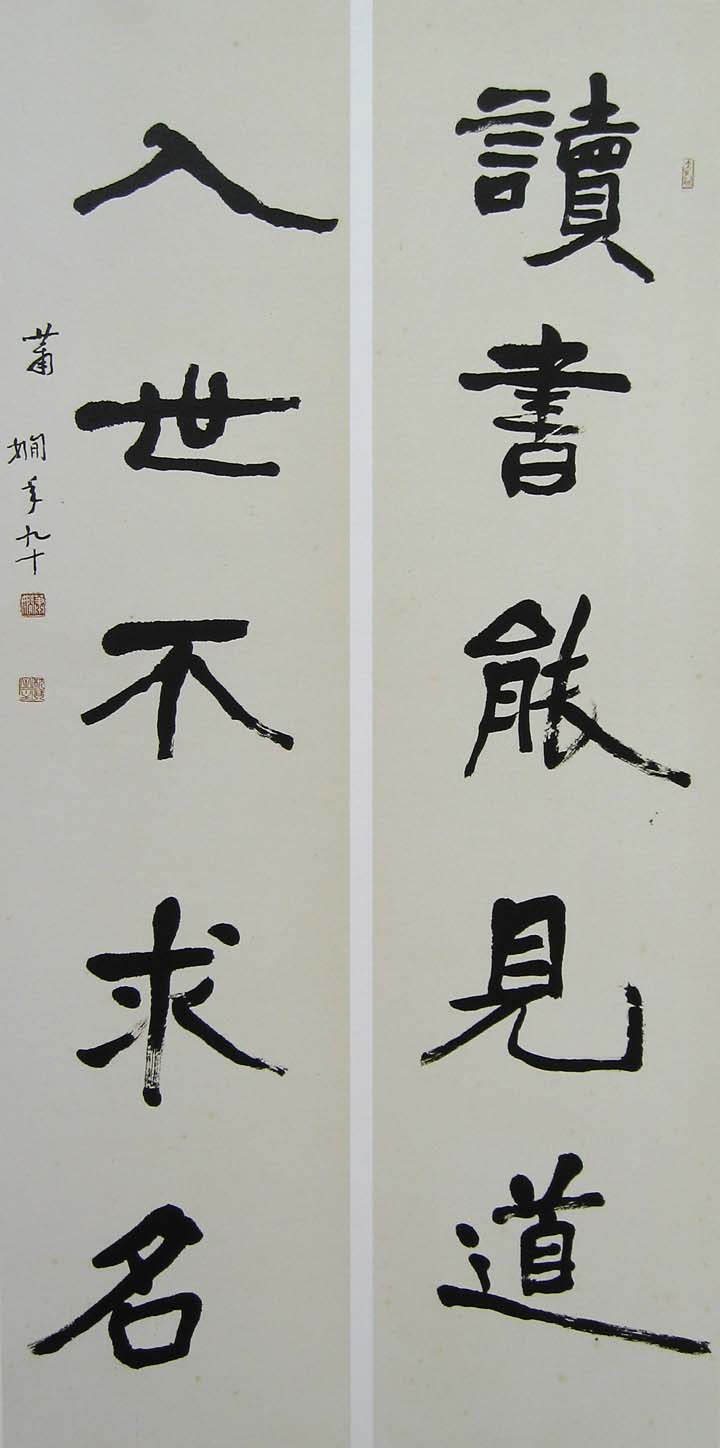 讀書能見道
入世不求名
蕭嫻年九十